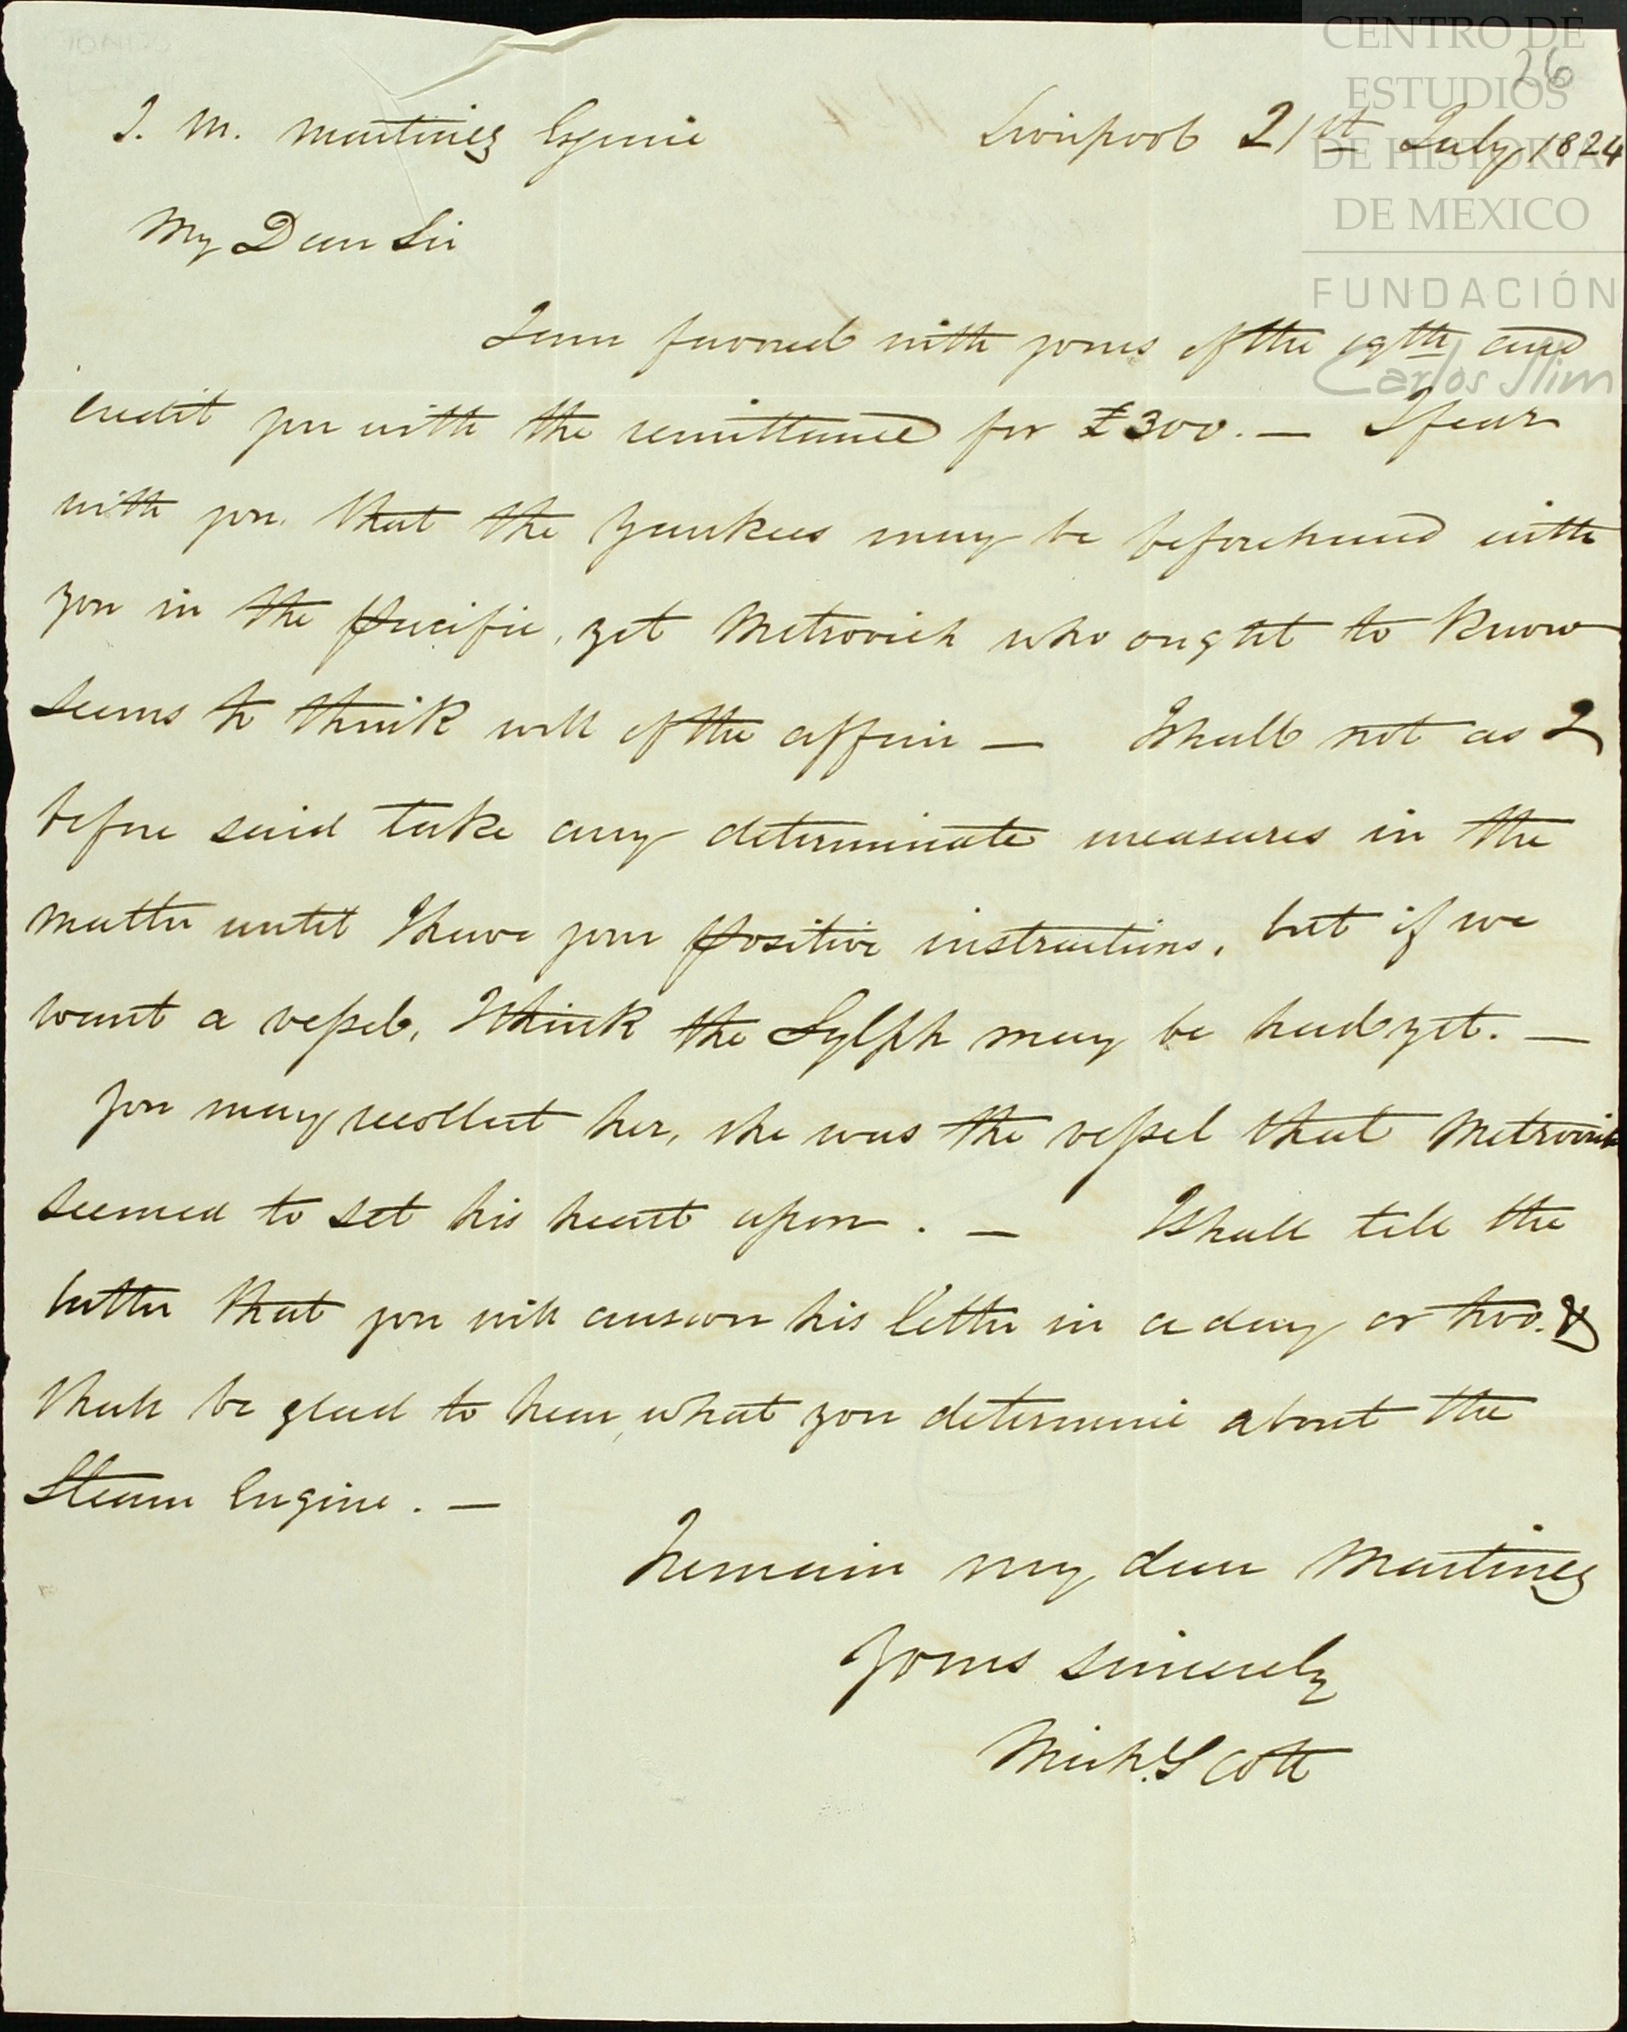 CENTRO DE
ESTUDIOS
DE HISTORIA
DE MEXICO
FUNDACIÓN
Carlos Slim
26
J. M. Martinez Esquire Liverpool 21st July 1824
My Dear Sir
I am favored with yours of the 19th and
credit you with the remittance for £300. — I fear
with you that the Yankees may be beforehand with
you in the Pacific, yet Metrovich who ought to know
seems to think well of the affair — I shall not as I
before said take any determinate measures in the
matter until I have your positive instructions, but if we
want a vessel, I think the Sylph may be had yet. —
you may recollect her, she was the vessel that Metrovich
seemed to set his heart upon. — I shall tell the
latter that you will answer his letter in a day or two. &
shall be glad to hear, what you determine about the
Steam Engine. —
I remain my dear Martinez
Yours sincerely
Mich. Scott